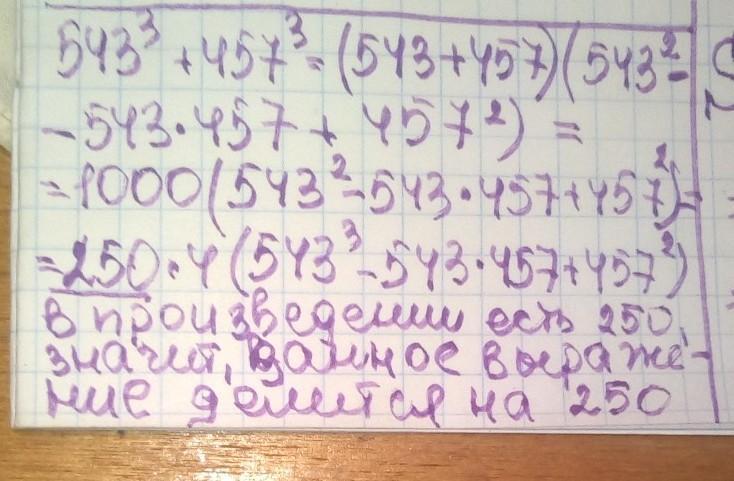 543³ + 457³ = (543 + 457)(543² -
- 543 · 457 + 457²) =
= 1000(543² - 543 · 457 + 457²) =
= 250 · 4(543³ - 543 · 457 + 457²)
в произведении есть 250,
значит, данное выраже-
ние делится на 250